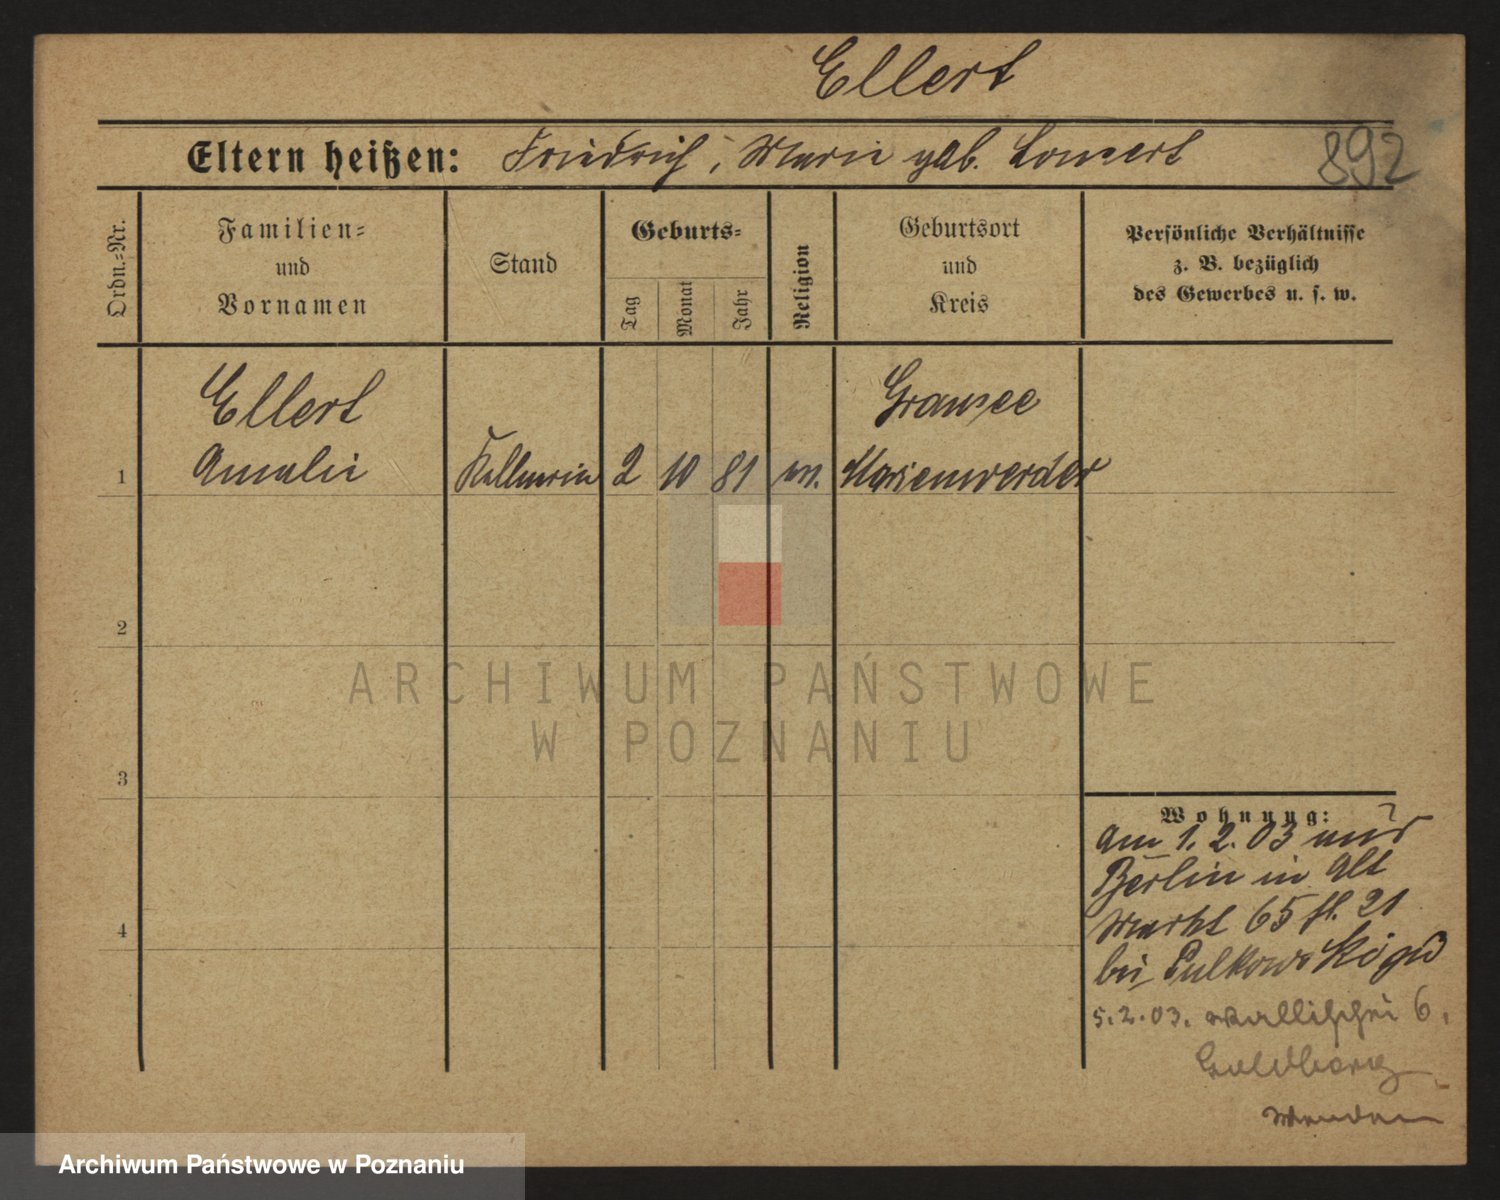 Ellert
Eltern heißen: Friedrich, Marie geb.
892
Ordn.-Nr.
Familien-
und
Vornamen
Stand
Geburts-
Tag
Monat
Jahr
Religion
Geburtsort
und
Kreis
Persönliche Verhältnisse
z. B. bezüglich
des Gewerbes u. s. w.
Ellert
Gransee
1 Amalie Kellnerin 2 10 81 Marienwerder
2
3
4
Wohnung:
am 1. 2. 03 aus
Berlin in Alt
Markt 65 fl. 21
bei Pulkowski
5.2.03. Wallischei 6.
Goldberg
Wenden
ARCHIWUM PAŃSTWOWE
W POZNANIU
Archiwum Państwowe w Poznaniu